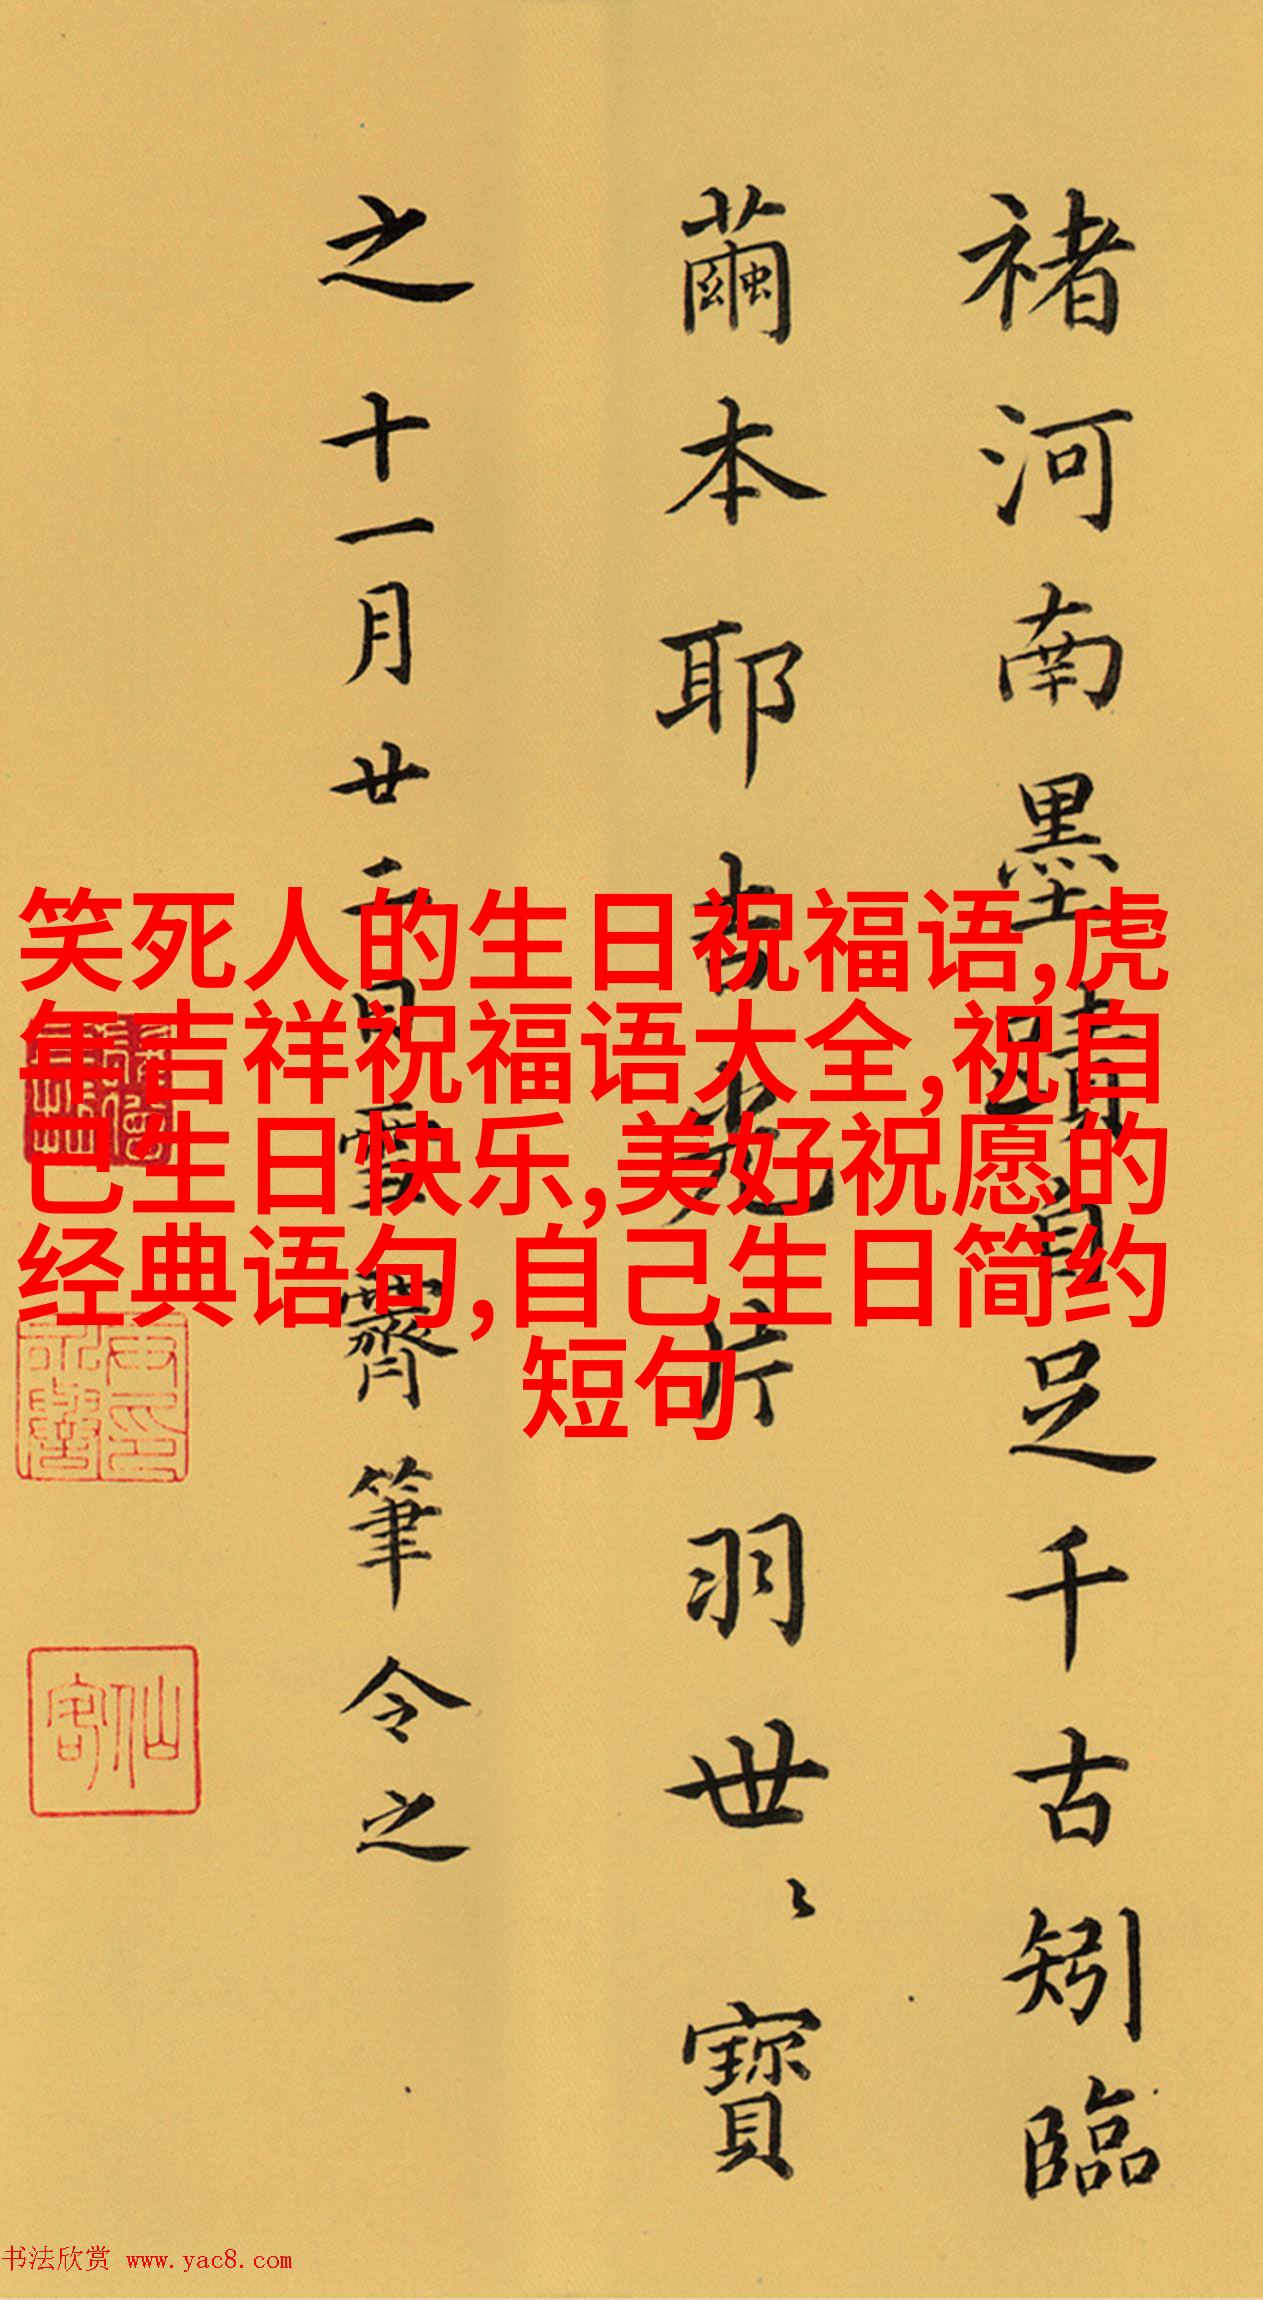 褚河南墨蹟自足千古矧臨
繭本耶吉光片羽世〻寶
之十一月廿二日雪霽筆令之
笑死人的生日祝福语,虎
年吉祥祝福语大全,祝自
己生日快乐,美好祝愿的
经典语句,自己生日简约
短句
仙客
书法欣赏 www.yac8.com